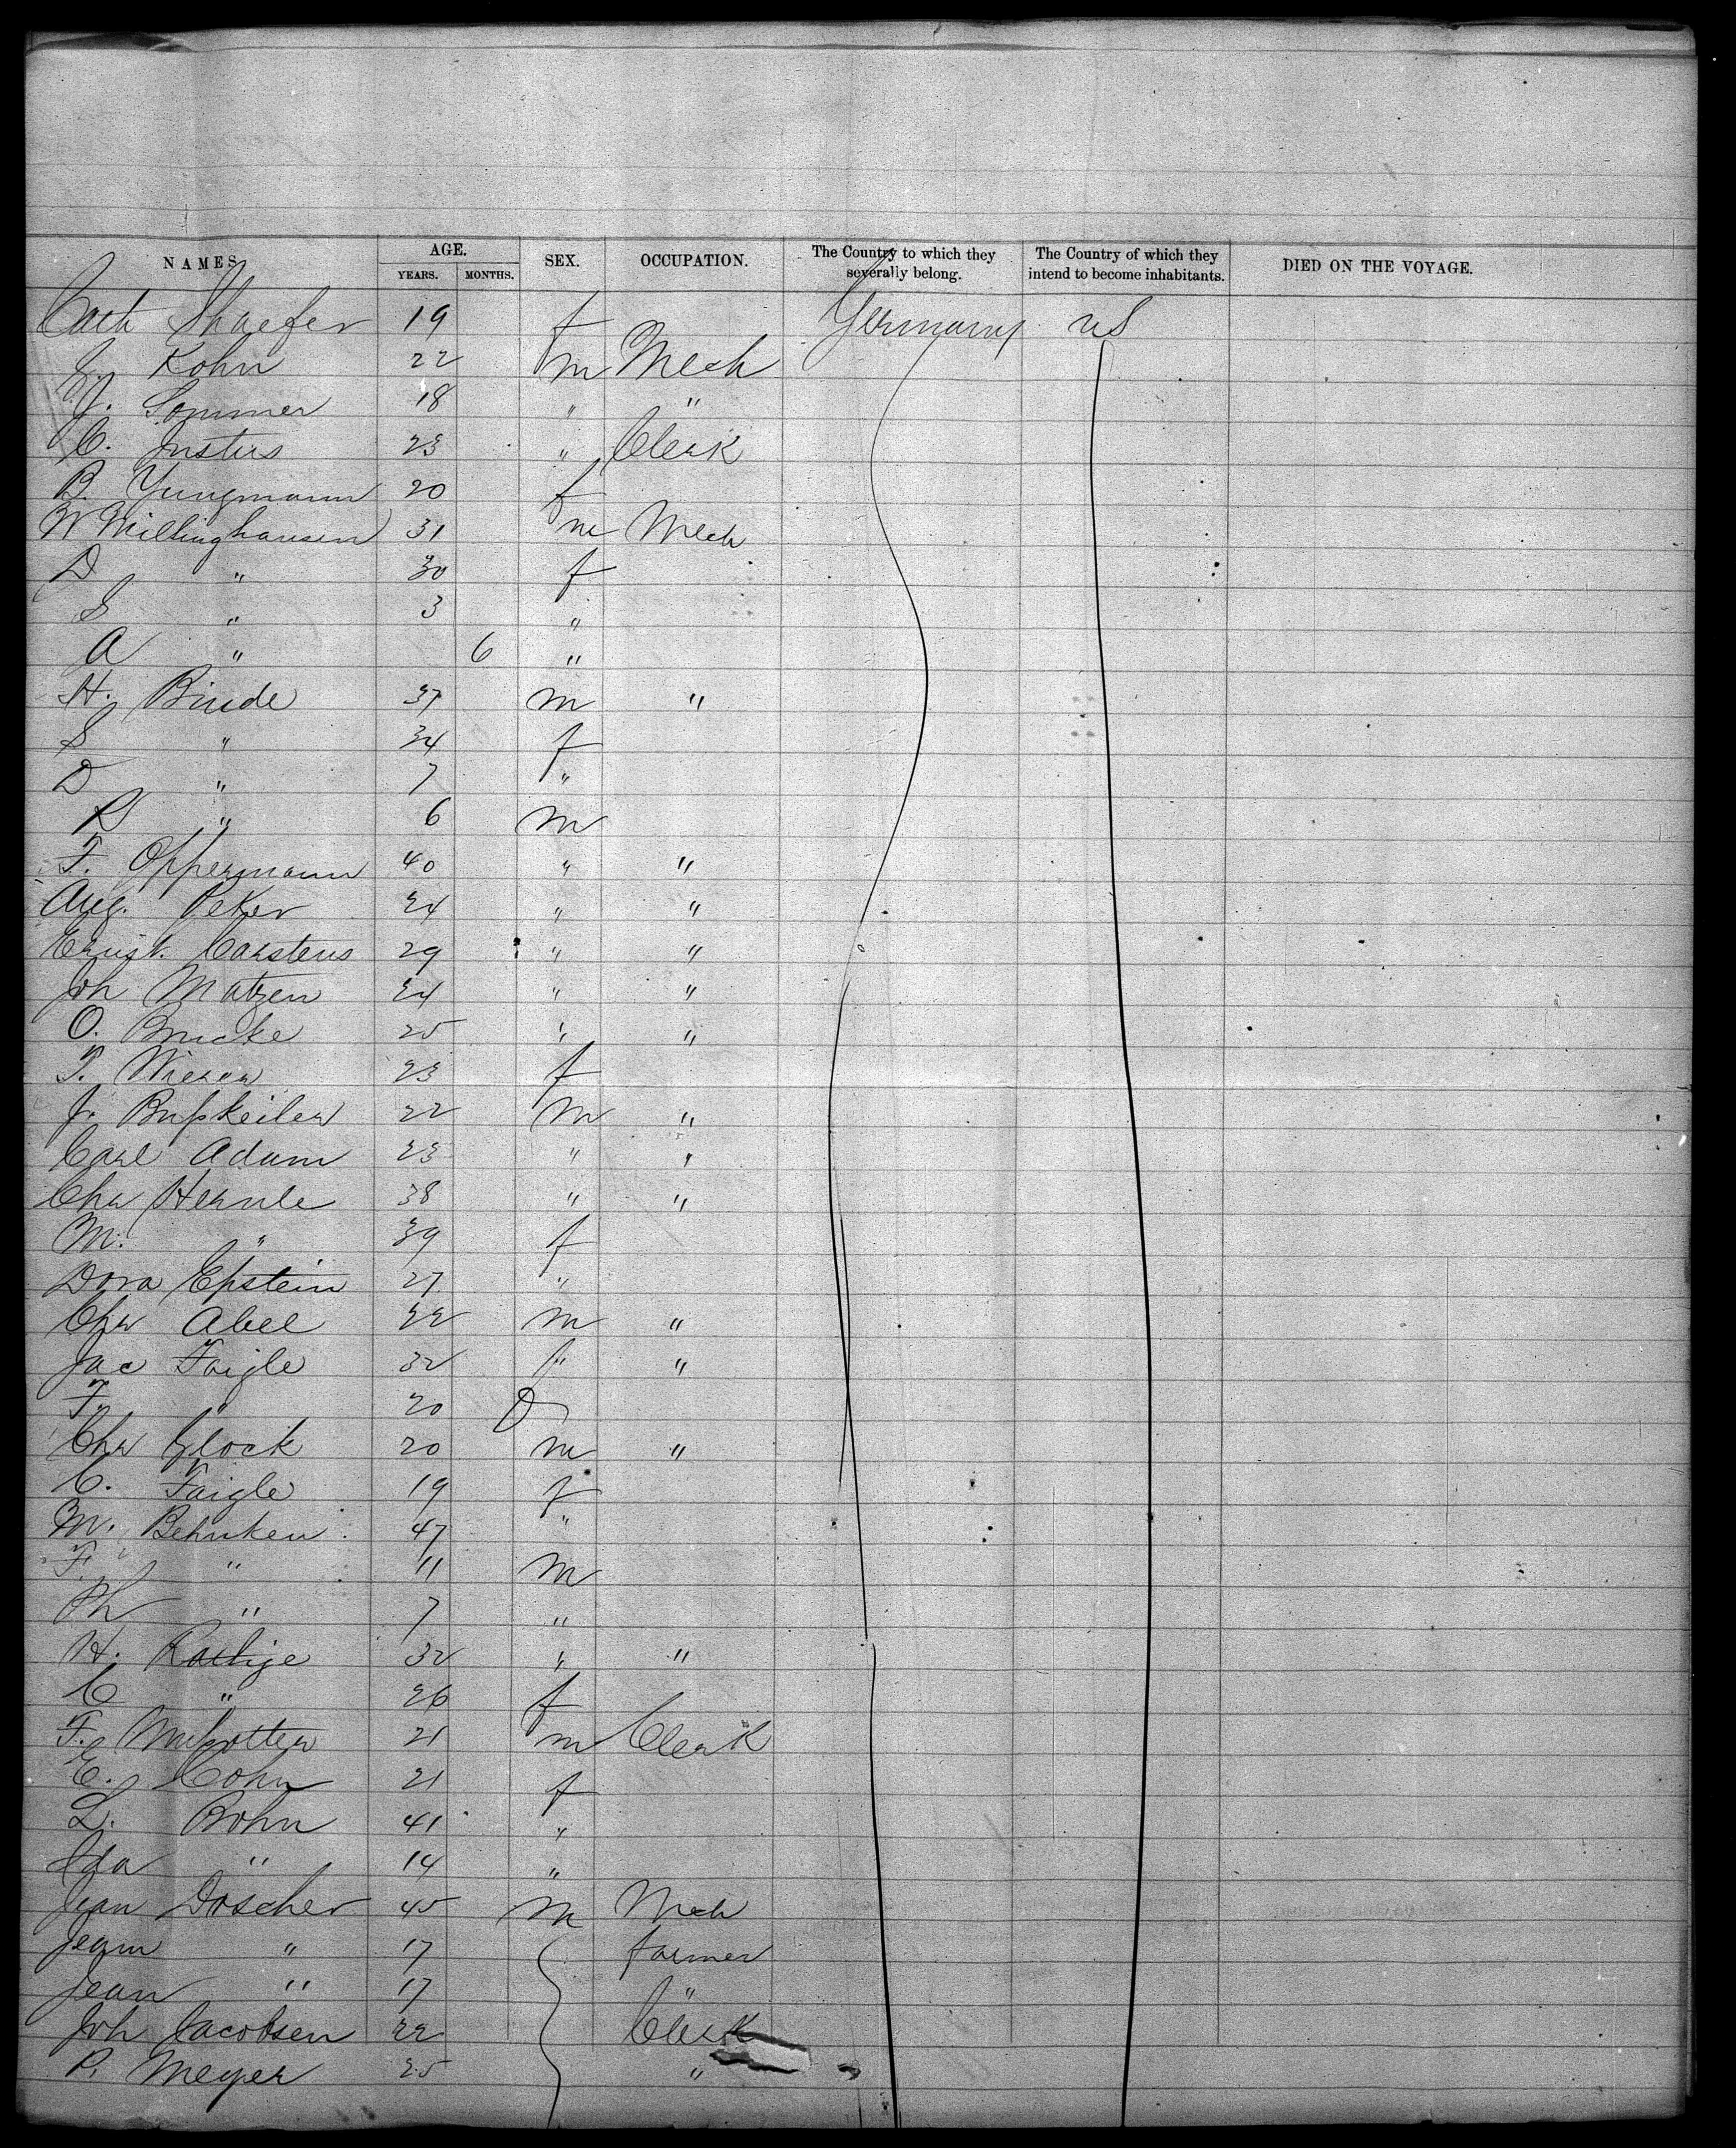 NAMES. AGE. YEARS. MONTHS. SEX. OCCUPATION. The Country to which they severally belong. The Country of which they intend to become inhabitants. DIED ON THE VOYAGE.
Cath Shaefer 19 f Germany US
S. Kohn 22 m Mech
J. Sommer 18 " "
C. Justus 23 " Clerk
B. Yungmann 20 f
W Millinghausen 31 m Mech
D " 30 f
S " 3 "
A " 6 "
H. Binde 37 m "
S " 34 f
D " 7 "
R " 6 m
F. Oppermann 40 " "
Aug. Peker 24 " "
Ernst. Carstens 29 " "
Joh Matzen 24 " "
O. Brucke 25 " "
T. 23 f
J. 22 m "
Carl Adam 23 " "
Chr Hernle 38 " "
M. " 39 f
Dora Epstein 27 "
Chr Abel 22 m "
Jac Faigle 32 " "
F. " 20 f
Chr Glock 20 m "
C. Faigle 19 f
M. Behnken 47 "
F. " 11 m
Ph " 7 "
H. Rathje 32 " "
C " 26 f
F. 21 m Clerk
E. Cohn 21 f
L. Bohn 41 "
Ida " 14 "
Jean Doscher 45 m Mech
Jean " 17 farmer
Jean " 17 "
Joh Jacobsen 22 Clerk
P. Meyer 25 "